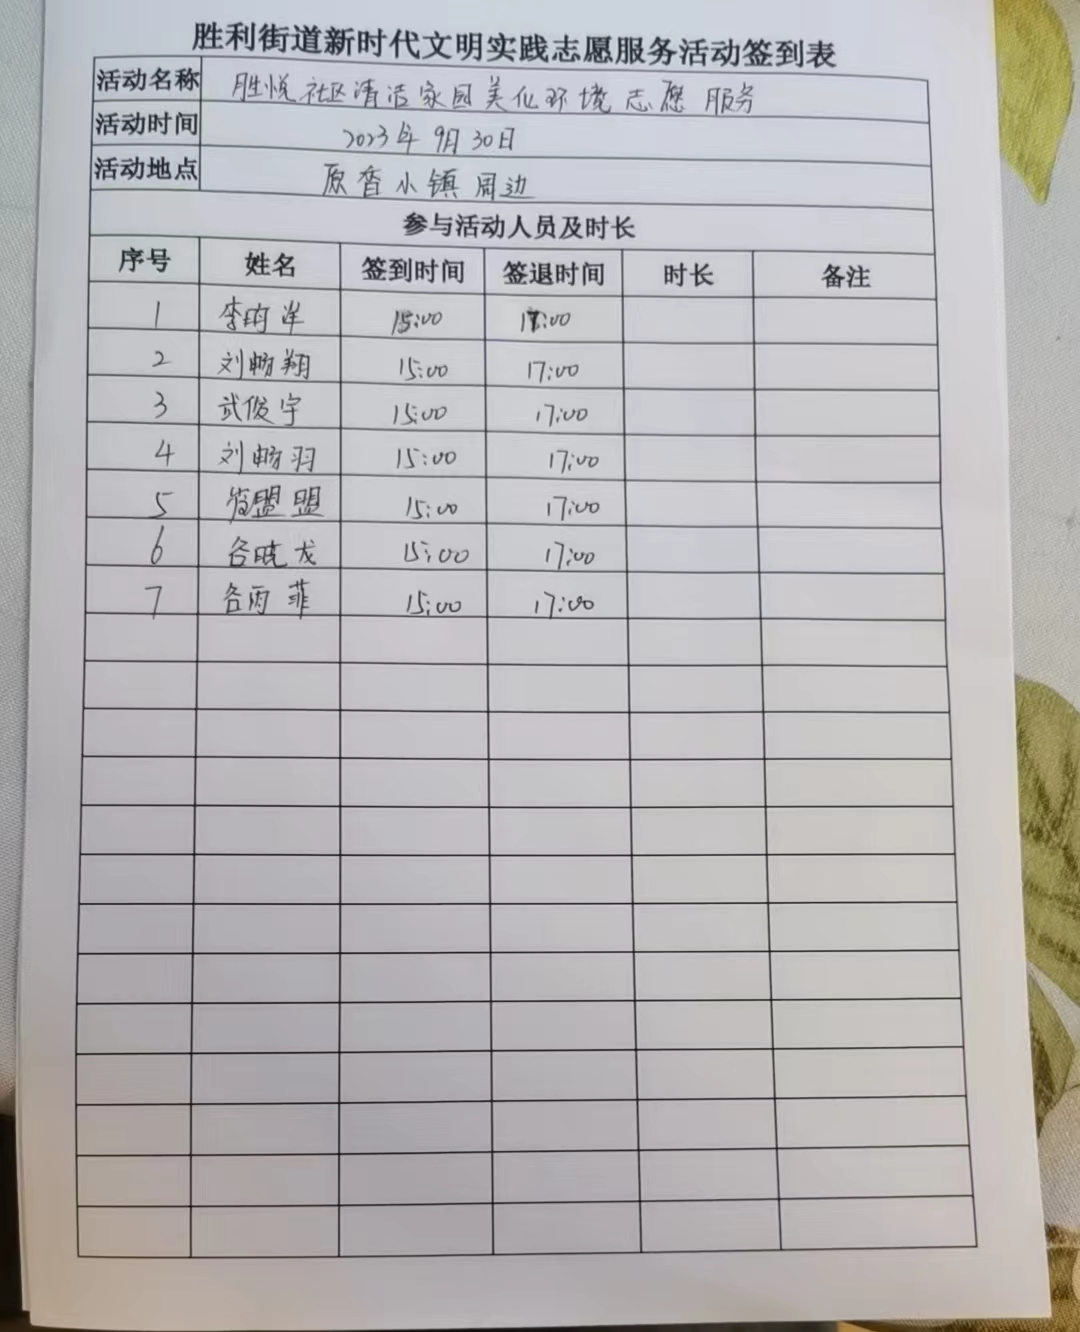 胜利街道新时代文明实践志愿服务活动签到表
活动名称 胜悦社区清洁家园美化环境志愿服务
活动时间 2023年9月30日
活动地点 原香小镇周边
参与活动人员及时长
序号 姓名 签到时间 签退时间 时长 备注
1 李昀洋 15:00 17:00
2 刘畅翔 15:00 17:00
3 武俊宇 15:00 17:00
4 刘畅羽 15:00 17:00
5 盟盟 15:00 17:00
6 晓龙 15:00 17:00
7 雨菲 15:00 17:00